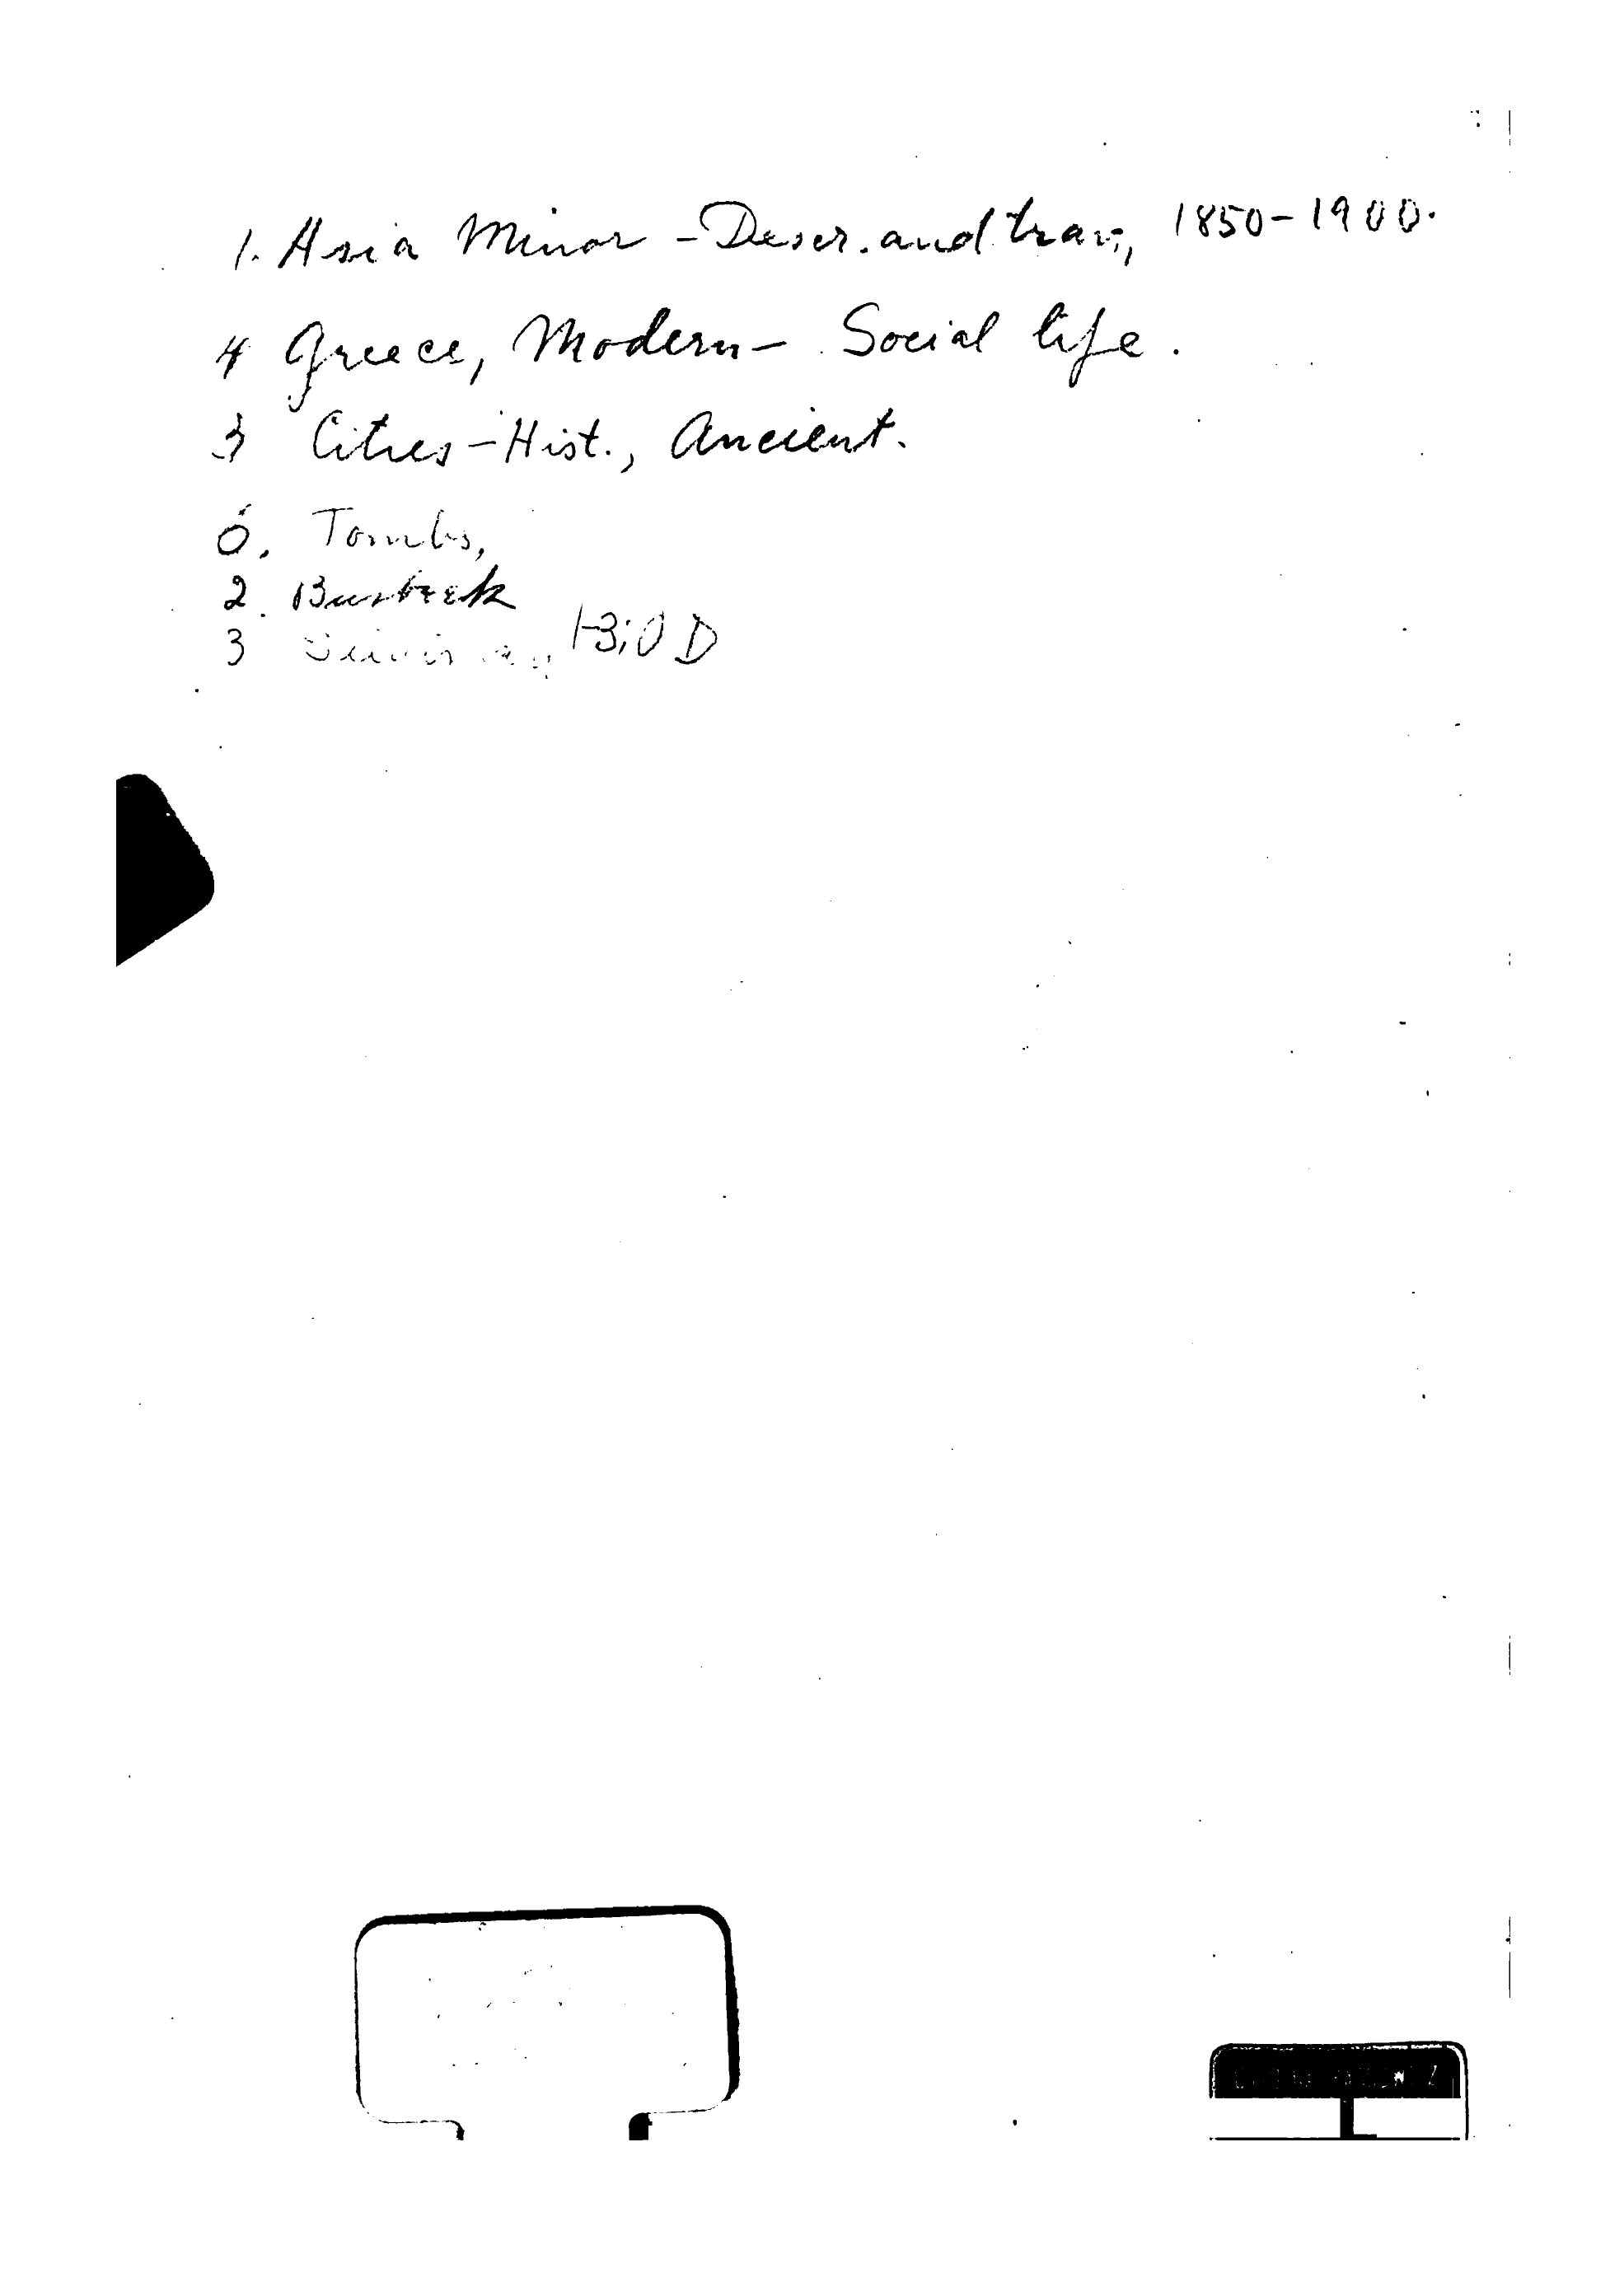 1. Asia Minor - Descr. and trav., 1850-1900.
4 Greece, Modern - Social life.
3 Cities - Hist., Ancient.
6. Tombs,
2. Busbeck
3